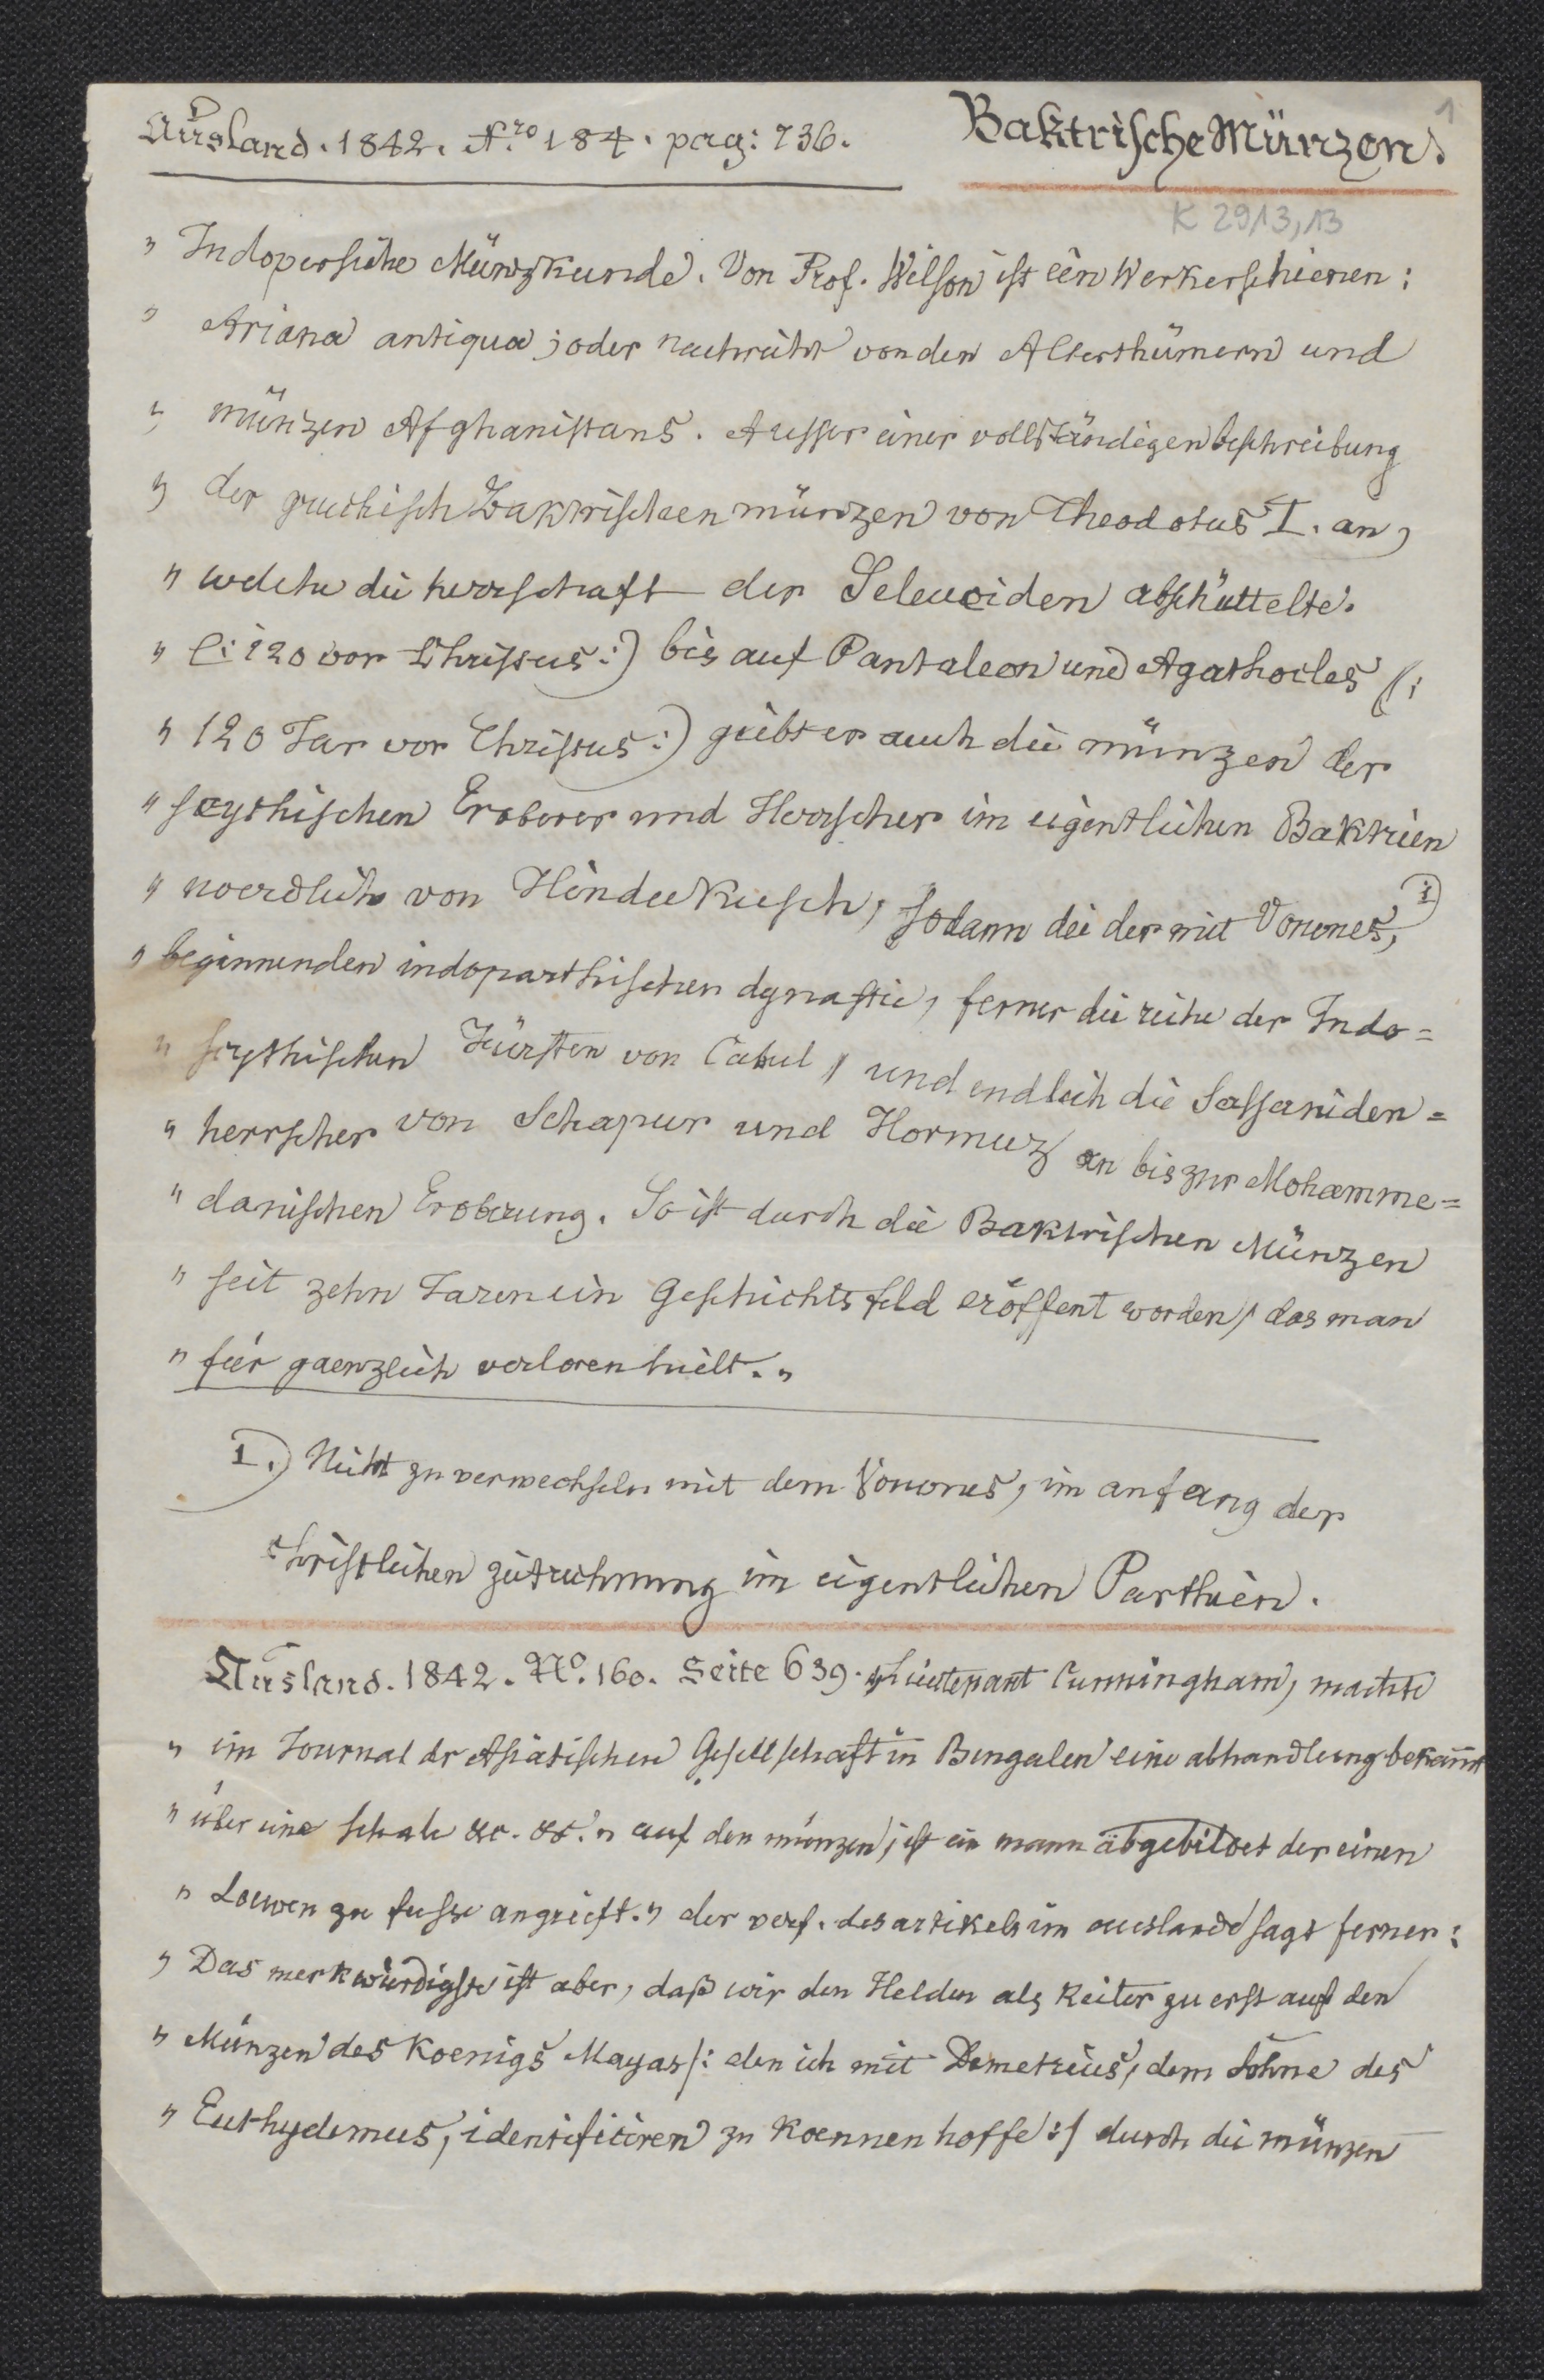 Ausland. 1842. Nro 184. pag: 736. Baktrische Münzen. 1
K 2913,13
" Indopersische Münzkunde. Von Prof. Wilson ist ein Werk erschienen:
" Ariana antiqua; oder nachricht von den Alterthümern und
" münzen Afghanistans. Ausser einer vollständigen beschreibung
" der griechisch baktrischen münzen von Theodotus I. an,
" welche die herrschaft der Seleuciden abschüttelte.
" (: 120 vor Christus :) bis auf Pantaleon und Agathocles (:
" 120 Jar vor Christus :) giebt er auch die münzen der
" scythischen Eroberer und Herrscher im eigentlichen Baktrien
" noerdlich von Hindukusch, sodann die der mit Vonones, 1)
" beginnenden indoparthischen dynastie, ferner die reihe der Indo=
" scythischen Fürsten von Cabul, und endlich die Sassaniden=
" herrscher von Schapur und Hormuz an bis zur Mohamme=
" danischen Eroberung. So ist durch die Baktrischen Münzen
" seit zehn Jaren ein Geschichtsfeld eröffent worden, das man
" für gaenzlich verloren hielt. "
1.) Nicht zu verwechseln mit dem Vonones, im anfang der
christlichen zeitrechnung im eigentlichen Parthien.
Ausland. 1842. No. 160. Seite 639. "Lieutenant Cunningham, machte
" im Journal dr Asiatischen Gesellschaft in Bengalen eine abhandlung bekannt
" über eine schale &c. &c. " auf den münzen, ist ein mann abgebildet der einen
" Loewen zu fusse angrieft. " der verf. des artikels im auslande sagt ferner:
" Das merkwürdigste ist aber, daß wir den Helden als Reiter zu erst auf den
" Münzen des Koenigs Mayas /: den ich mit Demetrius, dem Sohne des
" Euthydemus, identificiren zu koennen hoffe :/ durch die münzen